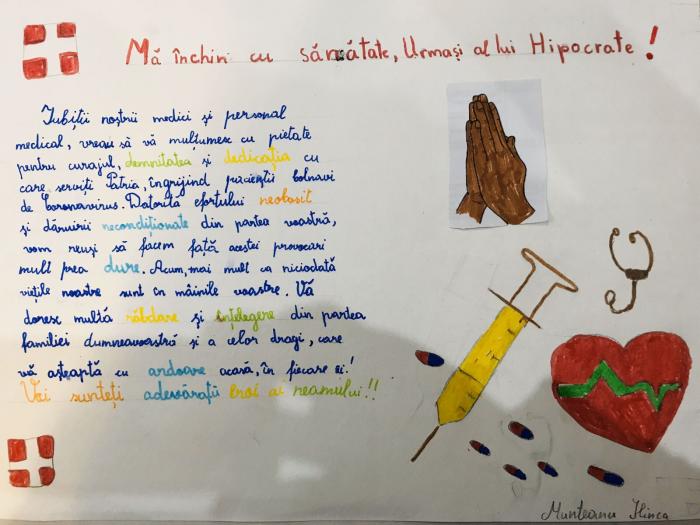 Mă închin cu sănătate, Urmași al lui Hipocrate!
Iubiții noștrii medici și personal
medical, vreau să vă mulțumesc cu pietate
pentru curajul, demnitatea și dedicația cu
care serviți Patria, îngrijind pacienții bolnavi
de coronavirus. Datorită efortului neobosit
și dăruirii necondiționate din partea voastră,
vom reuși să facem față acestei provocari
mult prea dure. Acum, mai mult ca niciodată
viețile noastre sunt în mâinile voastre. Vă
doresc multă răbdare și înțelegere din partea
familiei dumneavoastră și a celor dragi, care
vă așteaptă cu ardoare acasă, în fiecare zi!
Voi sunteți adevărații eroi ai neamului!!
Munteanu Ilinca